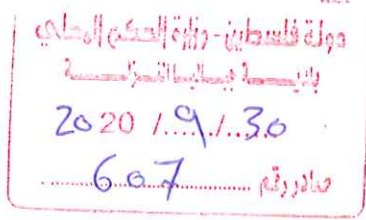 دولة فلسطين - وزارة الحكم المحلي
بلديــــة
2020 / 9 / 30
صادر رقم 607